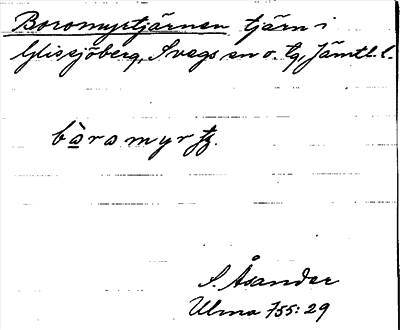 Boromyrtjärnen tjärn i
Glissjöberg, Svegs sn o. tg, Jämtl. l.
bòromyrtj.
S. Åsander
Ulma 755:29